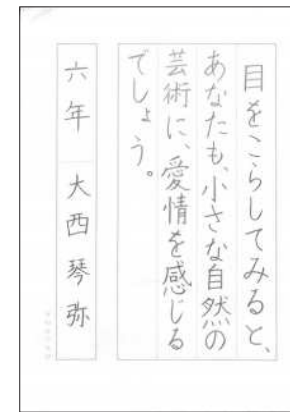 目をこらしてみると、
あなたも、小さな自然の
芸術に、愛情を感じる
でしょう。
六年 大西琴弥